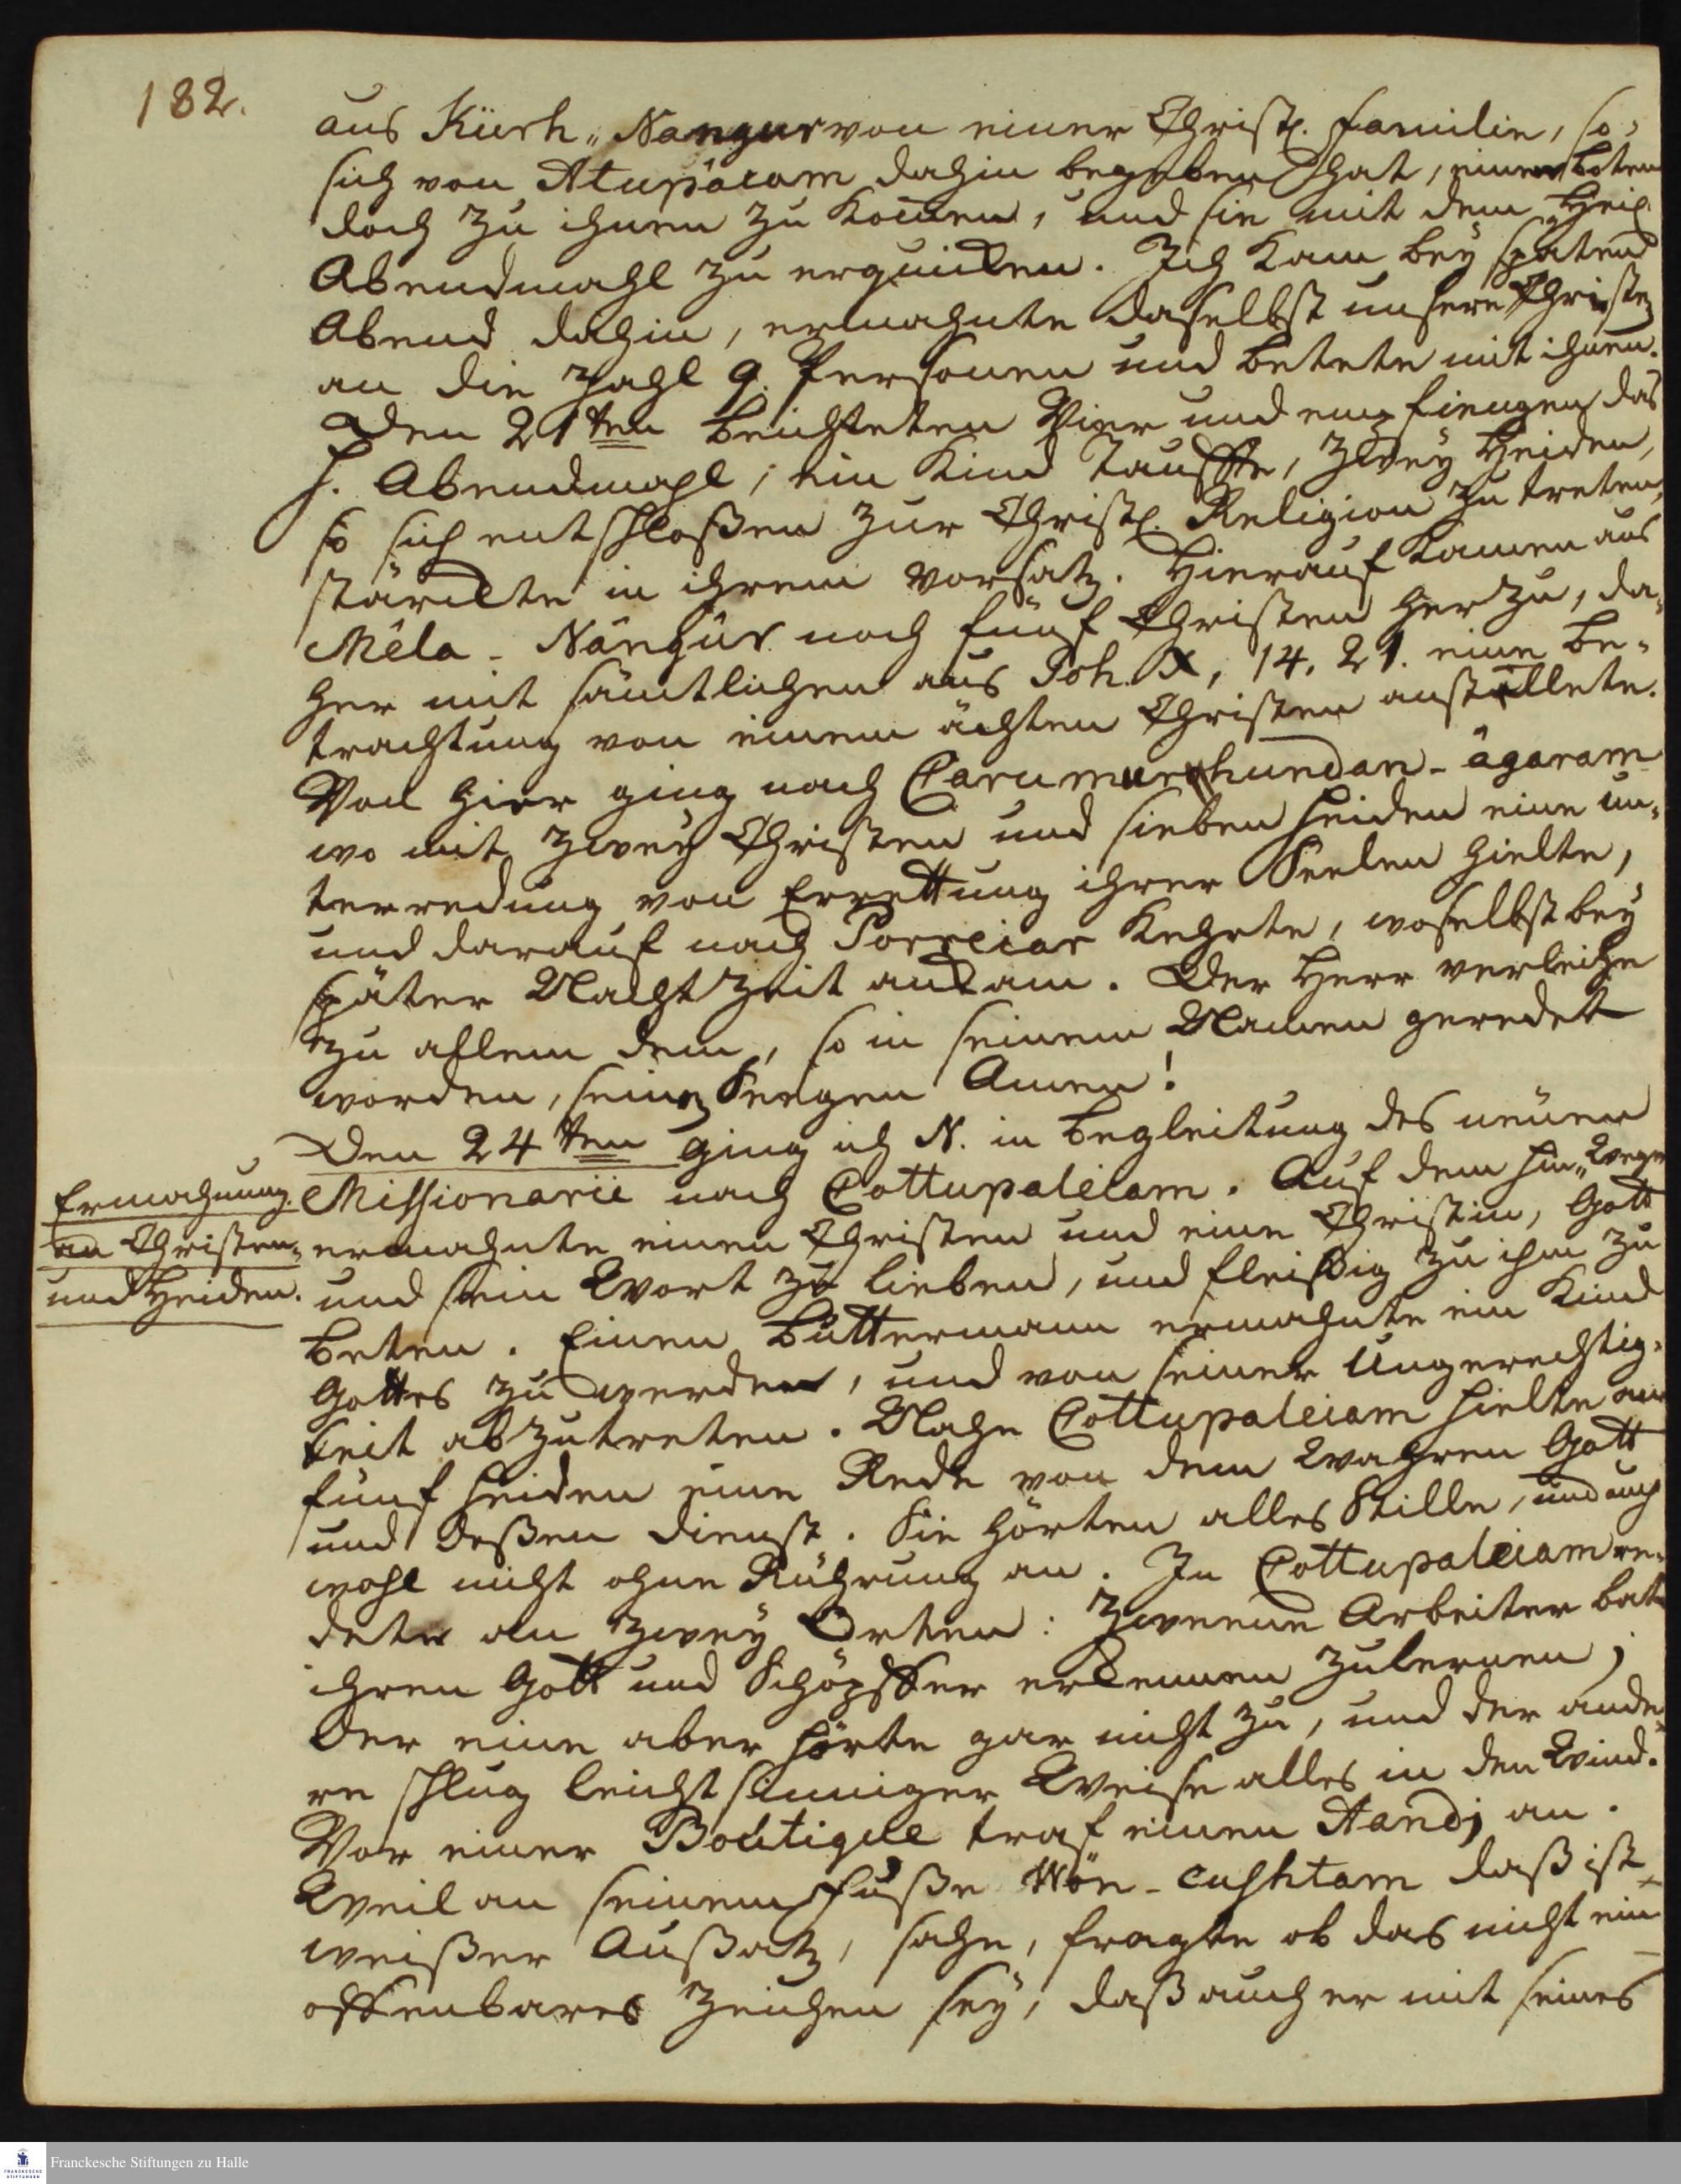 182.
aus Kürh„ Nangur von einer Christl. familie, so
sich von Atupácam dahin begeben hat, einen boten
doch zu ihnen zu komen, und sie mit dem Heil.
Abendmahl zu erquicken. Ich kam bey spätem
Abend dahin, ermahnte daselbst unsere Christen
an die Zahl 9. Personen und betete mit ihnen.
Den 21ten beichteten Vier und empfiengen das
h. Abendmahl; ein Kind tauffte, Zwey Heiden,
so sich entschloßen zur Christl. Religion zu treten,
stärckte in ihrem Vorsatz. Hierauf kamen aus
Mêla - Nângúr noch fünf Christen herzu, da„
her mit sämtlichen aus Joh. X, 14. 21. eine be„
trachtung von einem ächten Christen anstellete.
Von hier ging nach Carumunchundan - âgaram
wo mit zwey Christen und sieben Heiden eine un„
terredung von Errettung ihrer Seelen hielte,
und darauf nach Porreiar kehrte, woselbst bey
später Nachtzeit ankam. Der Herr verleihe
zu allem dem, so in seinem Namen geredet
worden, seinen Seegen Amen!
Den 24ten ging ich N. in begleitung des neuen
Ermahnung
an Christen„
und Heiden.
Missionarii nach Cottupaleiam. Auf dem hin„Wege
ermahnte einen Christen und eine Christin, Gott
und sein Wort zu lieben, und fleißig zu ihm zu
beten. Einen Buttermann ermahnte ein Kind
Gottes zu werden, und von seiner Ungerechtig„
keit abzutreten. Nahe Cottupaleiam hielte an
fünf Heiden eine Rede von dem wahren Gott
und deßen dienst. Sie hörten alles Stille, und auch
wohl nicht ohne Rührung an. In Cottupaleiam re„
dete an zwey Orten: Zweene Arbeiter bat
ihren Gott und Schöpffer erkennen zulernen;
der eine aber hörte gar nicht zu, und der ande„
re schlug leichtsinniger Weise alles in den Wind.
Vor einer Boutique traf einen Aandj an.
Weil an seinem Fuße Wön - cushtam daß ist
weißer Außatz, sahe, fragte ob das nicht ein
offenbares Zeichen sey, daß auch er mit seines
Franckesche Stiftungen zu Halle